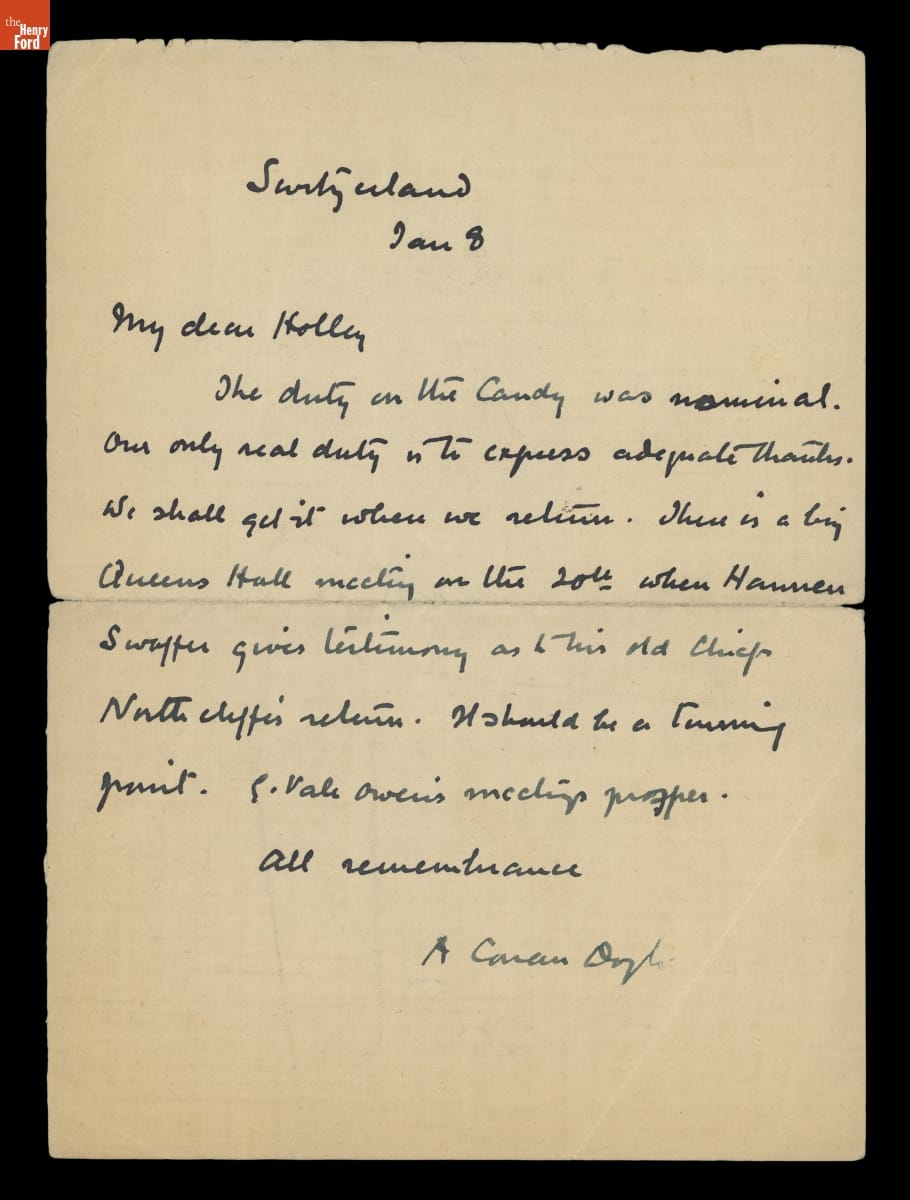 the
Henry
Ford
Switzerland
Jan 8
My dear Holley
The duty on the Candy was nominal.
Our only real duty is to express adequate thanks.
We shall get it when we return. There is a big
Queens Hall meeting on the 20th when Hannen
Swaffer gives testimony as to his old Chief
Northcliffe's return. It should be a turning
point. G. Vale Owen's meetings prosper.
All remembrance
A Conan Doyle